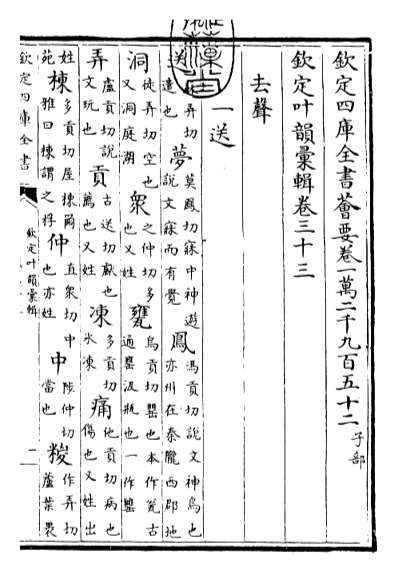 欽定四庫全書薈要卷一萬二千九百五十二 子部
欽定叶韻彙輯卷三十三
去聲
一送
弄切遣也 夢 莫鳳切寐中神遊說文寐而有覺 鳳 馮貢切說文神鳥也亦州在秦隴西郡地
洞 徒弄切空也又洞庭湖 衆 之仲切多也又姓 甕 烏貢切罌也本作瓮古通罌汲瓶也一作罋
弄 盧貢切說文玩也 貢 古送切獻也薦也又姓 凍 多貢切氷凍 痛 他貢切病也傷也又姓出
姓苑 棟 多貢切屋棟爾雅曰棟謂之桴 仲 直衆切中也亦姓 中 陟仲切當也 糉 作弄切蘆葉裹
欽定四庫全書 欽定叶韻彙輯 一